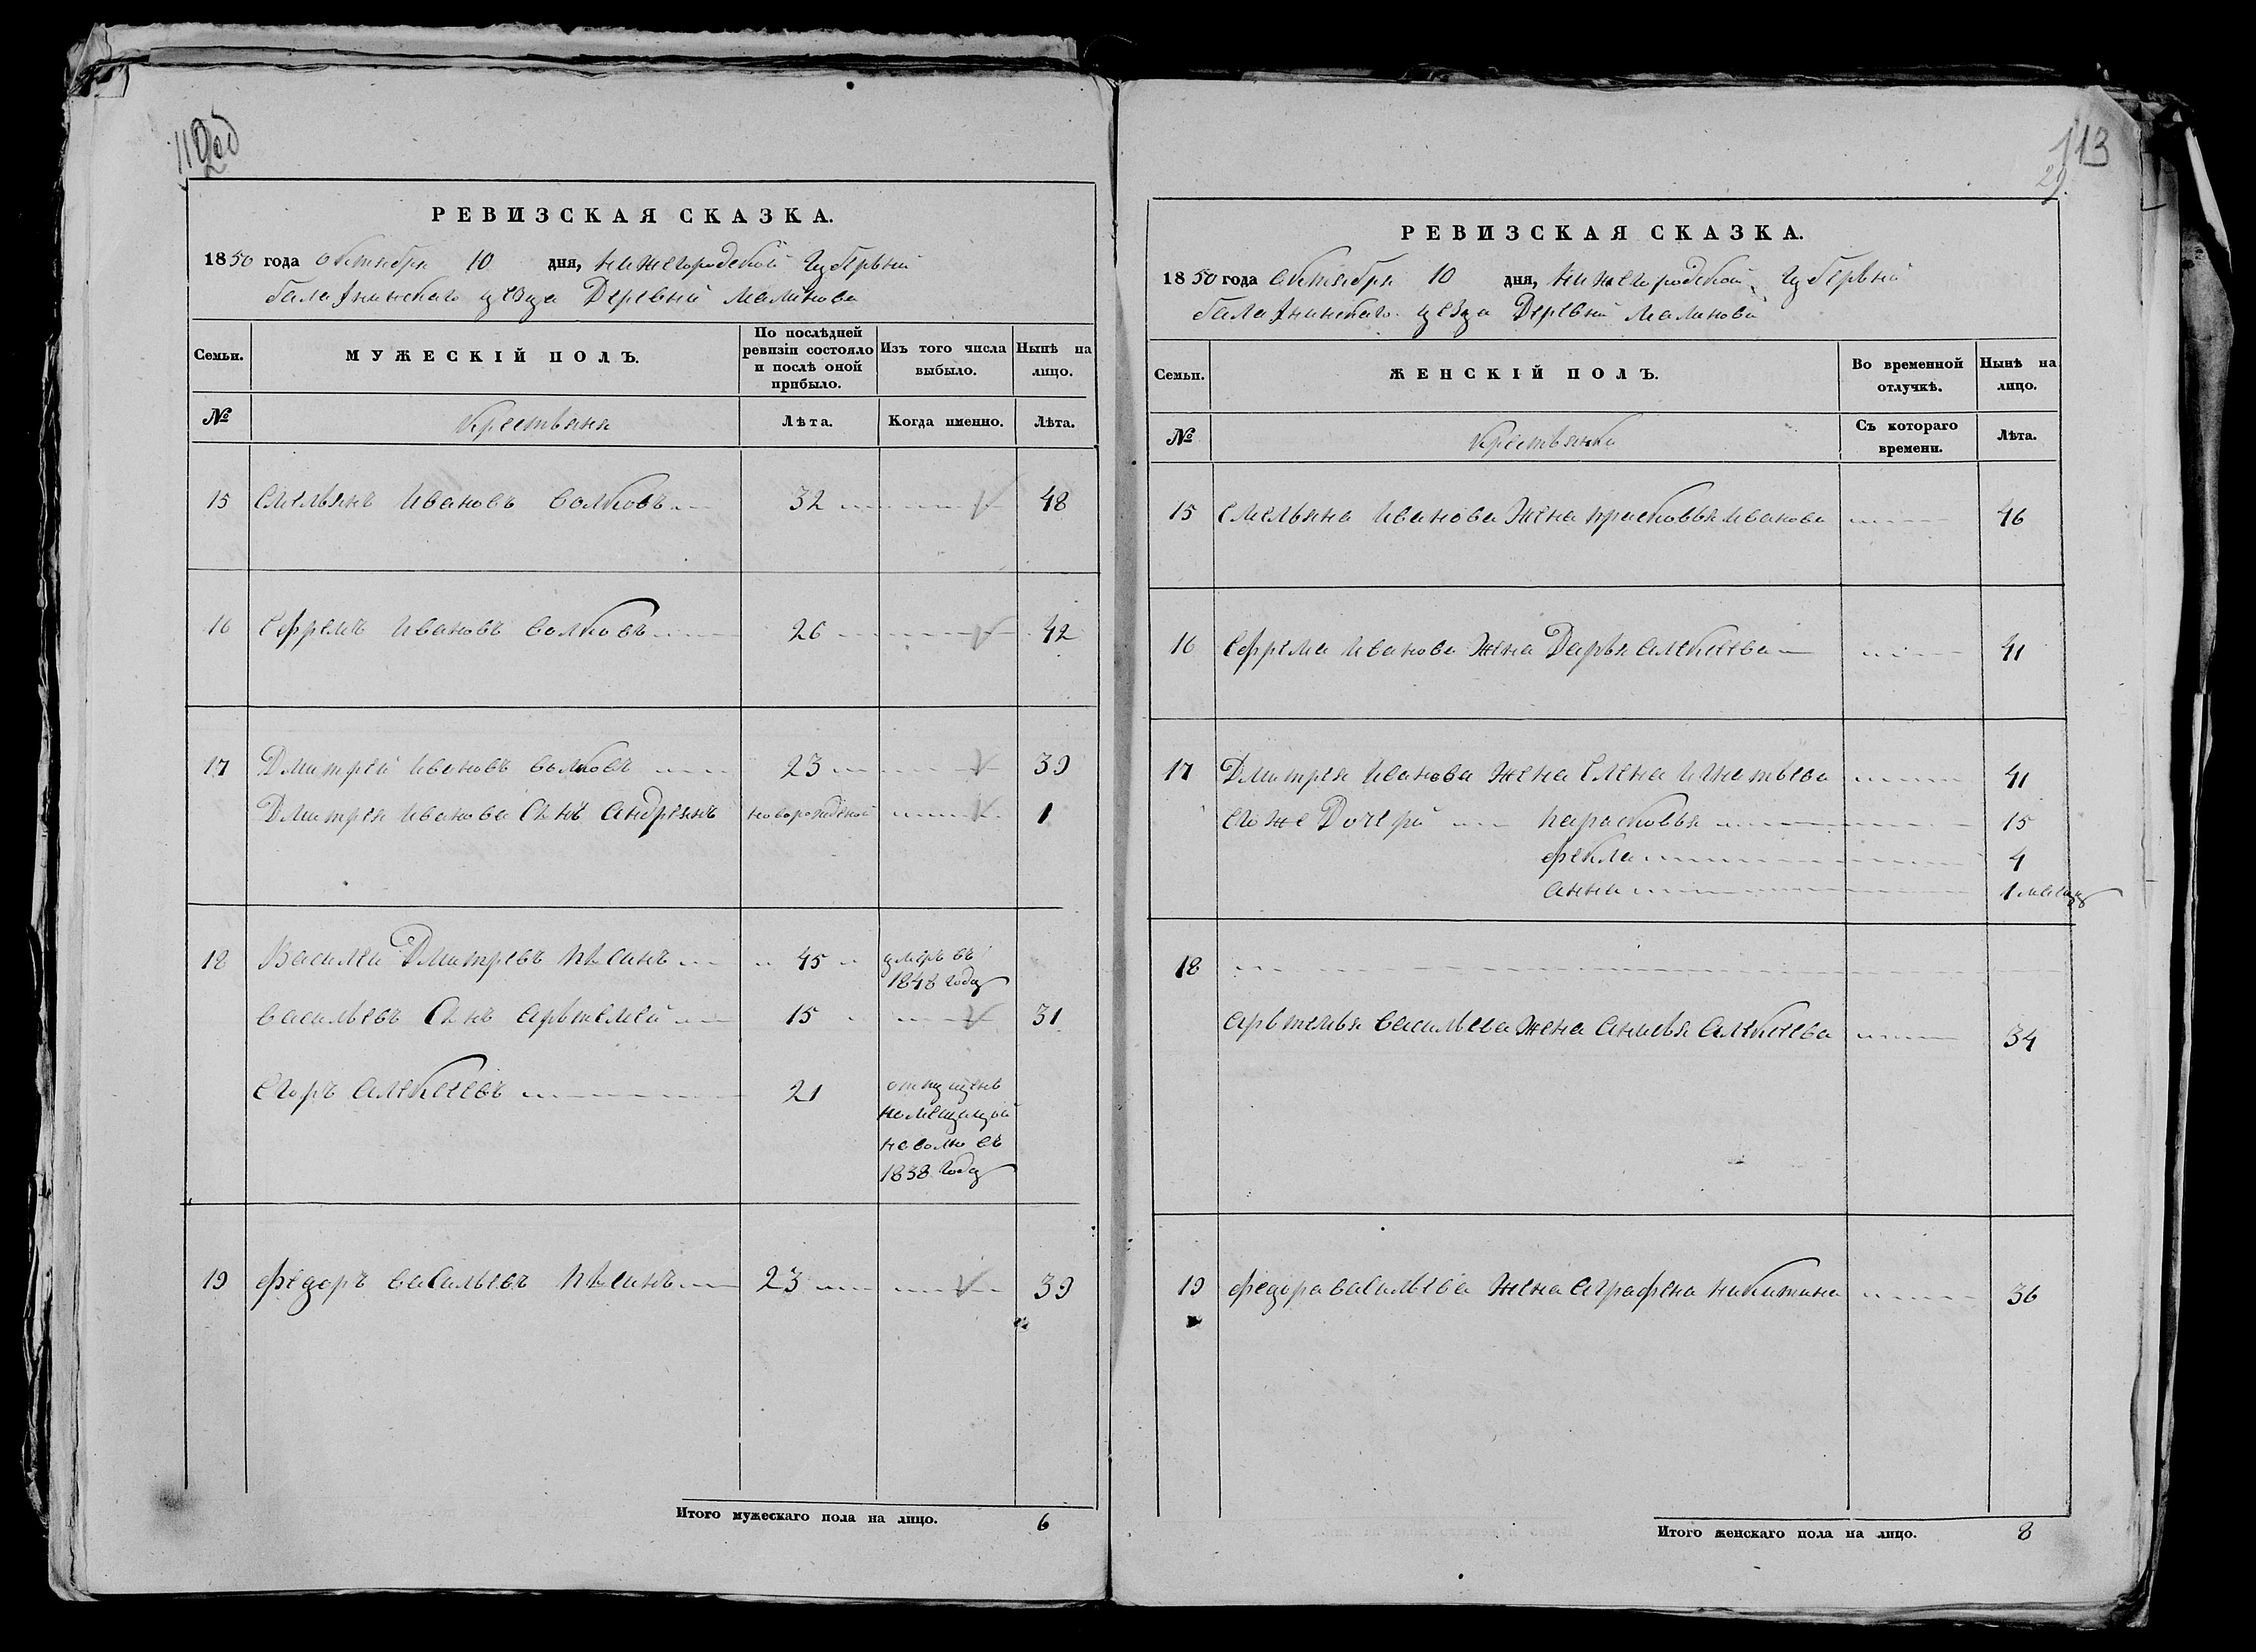 112об
РЕВИЗСКАЯ СКАЗКА.
1850 года октября 10 дня, нижегородской губернии
балахнинскаго уезда Деревни малинова
Семьи.
МУЖЕСКІЙ ПОЛЪ.
По послѣдней ревизіи состояло и послѣ оной прибыло.
Изъ того числа выбыло.
Нынѣ на лицо.
№
крестьяня
Лѣта.
Когда именно.
Лѣта.
15 емельянъ ивановъ волковъ 32 48
16 ефремъ ивановъ волковъ 26 42
17 Дмитрей ивановъ волковъ 23 39
Дмитрея иванова Сынъ андреянъ новорожденой 1
18 Василеи Дмитревъ 45 умеръ въ
1848 году
васильевъ Сынъ артемей 15 31
егоръ алексеевъ 21 отпущенъ
помещицой
наволю въ
1838 году
19 федоръ васильевъ 23 39
Итого мужескаго пола на лицо. 6
113
29
РЕВИЗСКАЯ СКАЗКА.
1850 года октября 10 дня, нижегородской губернии
балахнинскаго уезда Деревни малинова
Семьи.
ЖЕНСКІЙ ПОЛЪ.
Во временной отлучкѣ.
Нынѣ на лицо.
№
крестьянки
Съ котораго времени.
Лѣта.
15 емельяна иванова жена прасковья иванова 46
16 ефрема иванова жена Дарья алексеева 41
17 Дмитрея иванова жена елена игнатьева 41
его же Дочери парасковья 15
фекла 4
анна 1 месяцъ
18
артемья васильева жена анисья алексеева 34
19 федора васильева жена аграфена никитина 36
Итого женскаго пола на лицо. 8